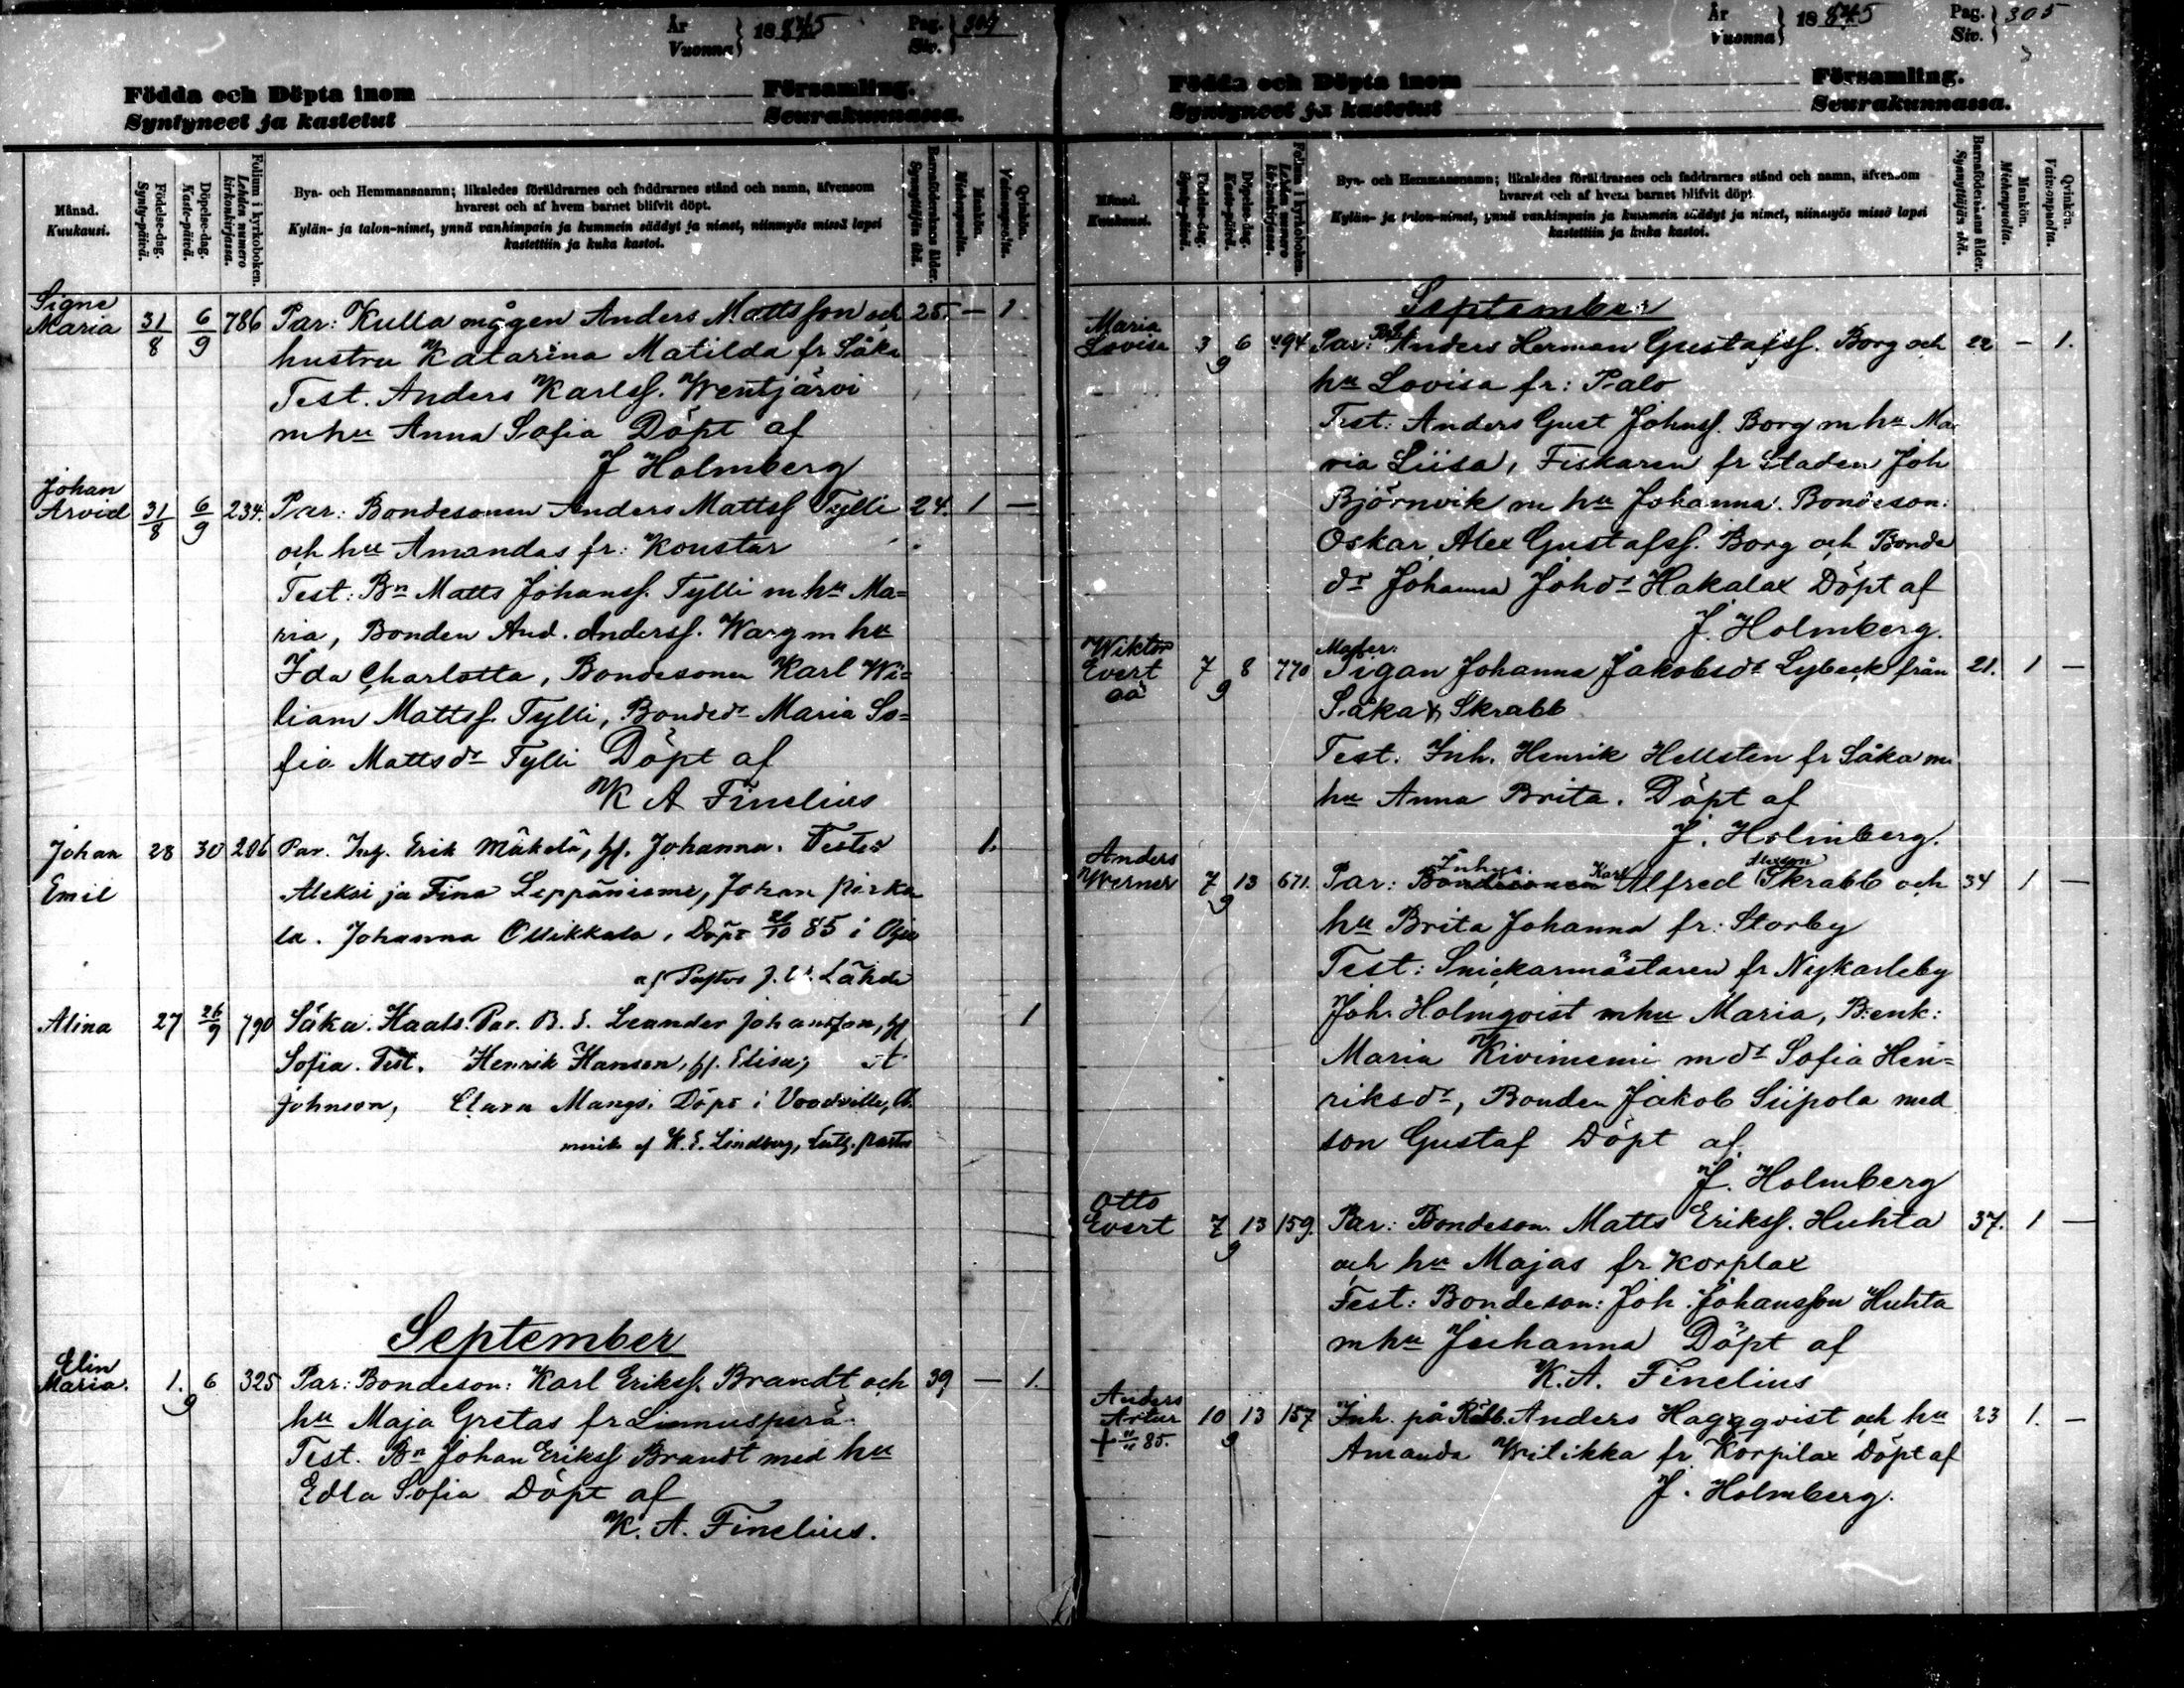 År
Vuonna } 1885 Pag.
Siv. } 304
Födda och Döpta inom Församling.
Syntyneet ja kastetut Seurakunnassa.
Månad.
Kuukausi.
Födelse-dag.
Synty-päivä.
Döpelse-dag.
Kaste-päivä.
Folium i kyrkoboken.
Lehden numero
kirkonkirjassa.
Byn- och Hemmansnamn; likaledes föräldrarnes och faddrarnes stånd och namn, äfvensom
hvarest och af hvem barnet blifvit döpt.
Kylän- ja talon-nimet, ynnä vanhimpain ja kummein säädyt ja nimet, niinmyös missä lapsi
kastettiin ja kuka kastoi.
Barnaföderskans ålder.
Synnyttäjän ikä.
Mankön.
Miehenpuolta.
Qvinkön.
Vaimonpuolta.
Signe
Maria 31/8 6/9 786 Par: Kulla mågen Anders Mattsson och 25. — 1.
hustru Katarina Matilda fr Såka
Test. Anders Karlsf. Wentjärvi
m hu Anna Sofia Döpt af
J Holmberg
Johan
Arvid 31/8 6/9 234. Par: Bondesonen Anders Mattsf Tylli 24. 1 —
och hu Amandas fr: Koustar
Test: Bn Matts Johansf. Tylli m hu Ma=
ria, Bonden And. Andersf. Warg m hu
Ida Charlotta, Bondesonen Karl Wi=
liam Mattsf. Tylli, Bondedr Maria So=
fia Mattsdr Tylli Döpt af
K A Finelius
Johan 28 30 206 Par. Inh. Erik Mäkelä, hf. Johanna. Testes 1.
Emil Aleksi ja Fina Leppäniemi, Johan Pirka
la. Johanna Ollikkala, Döpt 20/10 85 i
af Pastor J. W. Lähde
Alina 27 26/9 790 Såka. Kaats. Par. B. S. Leander Johansson, hf 1
Sofia. Test. Henrik Hanson, hf. Elisa; A
Johnson, Clara Mangs. Döpt i Woodville, A.
merik af K. E. Lindberg, Luth. pastor
September
Elin
Maria. 1. 6 9 325 Par: Bondeson: Karl Eriksf. Brandt och 39 — 1.
hu Maja Gretas fr Linnusperä
Test. Bn Johan Eriksf Brandt med hu
Edla Sofia Döpt af
K. A. Finelius.
År
Vuonna } 1885 Pag.
Siv. } 305
Födda och Döpta inom Församling.
Syntyneet ja kastetut Seurakunnassa.
Månad.
Kuukausi.
Födelse-dag.
Synty-päivä.
Döpelse-dag.
Kaste-päivä.
Folium i kyrkoboken.
Lehden numero
kirkonkirjassa.
Byn- och Hemmansnamn; likaledes föräldrarnes och faddrarnes stånd och namn, äfvensom
hvarest och af hvem barnet blifvit döpt.
Kylän- ja talon-nimet, ynnä vanhimpain ja kummein säädyt ja nimet, niinmyös missä lapsi
kastettiin ja kuka kastoi.
Barnaföderskans ålder.
Synnyttäjän ikä.
Mankön.
Miehenpuolta.
Qvinkön.
Vaimonpuolta.
September
Maria
Lovisa 3 6 9 494 Par: Anders Herman Gustafsf. Borg och 22 — 1.
hu Lovisa fr: Palo
Test: Anders Gust Johnsf. Borg m hu Ma
ria Liisa, Fiskaren fr Staden Joh
Björnvik m hu Johanna. Bondeson:
Oskar Alex Gustafsf. Borg och Bonde
dr Johanna Johdr Hakalax Döpt af
J. Holmberg.
Wiktor
Evert
oä 7 8 9 770 Moder:
Pigan Johanna Jakobsdr Lybeck från 21. 1 —
Såka Skrabb
Test. Inh. Henrik Hellsten fr Såka m
hu Anna Brita. Döpt af
J. Holmberg.
Anders
Werner 7 13 9 671. Par: Bondesonen Inhys. Karl Alfred Alexson Skrabb och 34 1 —
hu Brita Johanna fr: Storby
Test: Snickarmästaren fr Nykarleby
Joh. Holmqvist m hu Maria, B:enk:
Maria Kivinemi m dr Sofia Hen=
riksdr, Bonden Jakob Siipola med
son Gustaf Döpt af
J. Holmberg
Otto
Evert 7 13 9 159. Par: Bondeson Matts Eriksf. Huhta 37. 1 —
och hu Majas fr Korplax
Test: Bondeson: Joh. Johansson Huhta
m hu Johanna Döpt af
K. A. Finelius
Anders
Artur 10 13 9 157 Inh. på Anders Haggqvist och hu 23 1. —
+ 85. Amanda Wilikka fr Korpilax Döpt af
J. Holmberg.